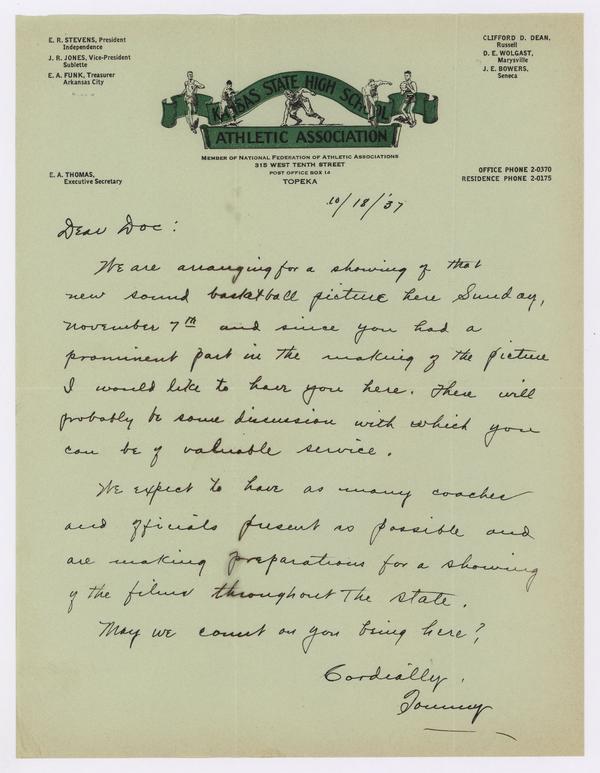 E. R. STEVENS, President
Independence
J. R. JONES, Vice-President
Sublette
E. A. FUNK, Treasurer
Arkansas City
CLIFFORD D. DEAN,
Russell
D. E. WOLGAST,
Marysville
J. E. BOWERS,
Seneca
KANSAS STATE HIGH SCHOOL
ATHLETIC ASSOCIATION
MEMBER OF NATIONAL FEDERATION OF ATHLETIC ASSOCIATIONS
315 WEST TENTH STREET
POST OFFICE BOX 14
TOPEKA
E. A. THOMAS,
Executive Secretary
OFFICE PHONE 2-0370
RESIDENCE PHONE 2-0175
10/18/'37
Dear Doc:
We are arranging for a showing of that
new sound basketball picture here Sunday,
November 7th and since you had a
prominent part in the making of the picture
I would like to have you here. There will
probably be some discussion with which you
can be of valuable service.
We expect to have as many coaches
and officials present as possible and
are making preparations for a showing
of the films throughout the state.
May we count on you being here?
Cordially,
Tommy